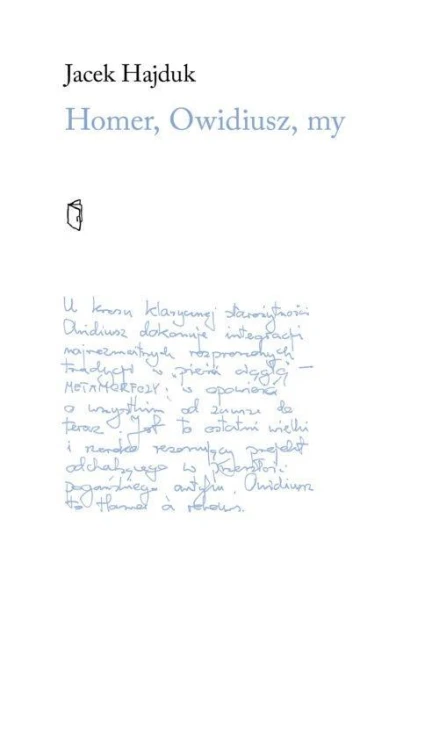 Jacek Hajduk
Homer, Owidiusz, my
U kresu klasycznej starożytności
Owidiusz dokonuje integracji
najrozmaitszych rozproszonych
tradycji w „pieśń ciągłą” —
METAMORFOZY: w opowieść
o wszystkim od zawsze do
teraz. Jest to ostatni wielki
i szeroko rezonujący projekt
odchodzącego w przeszłość
pogańskiego antyku. Owidiusz
to Homer à rebours.